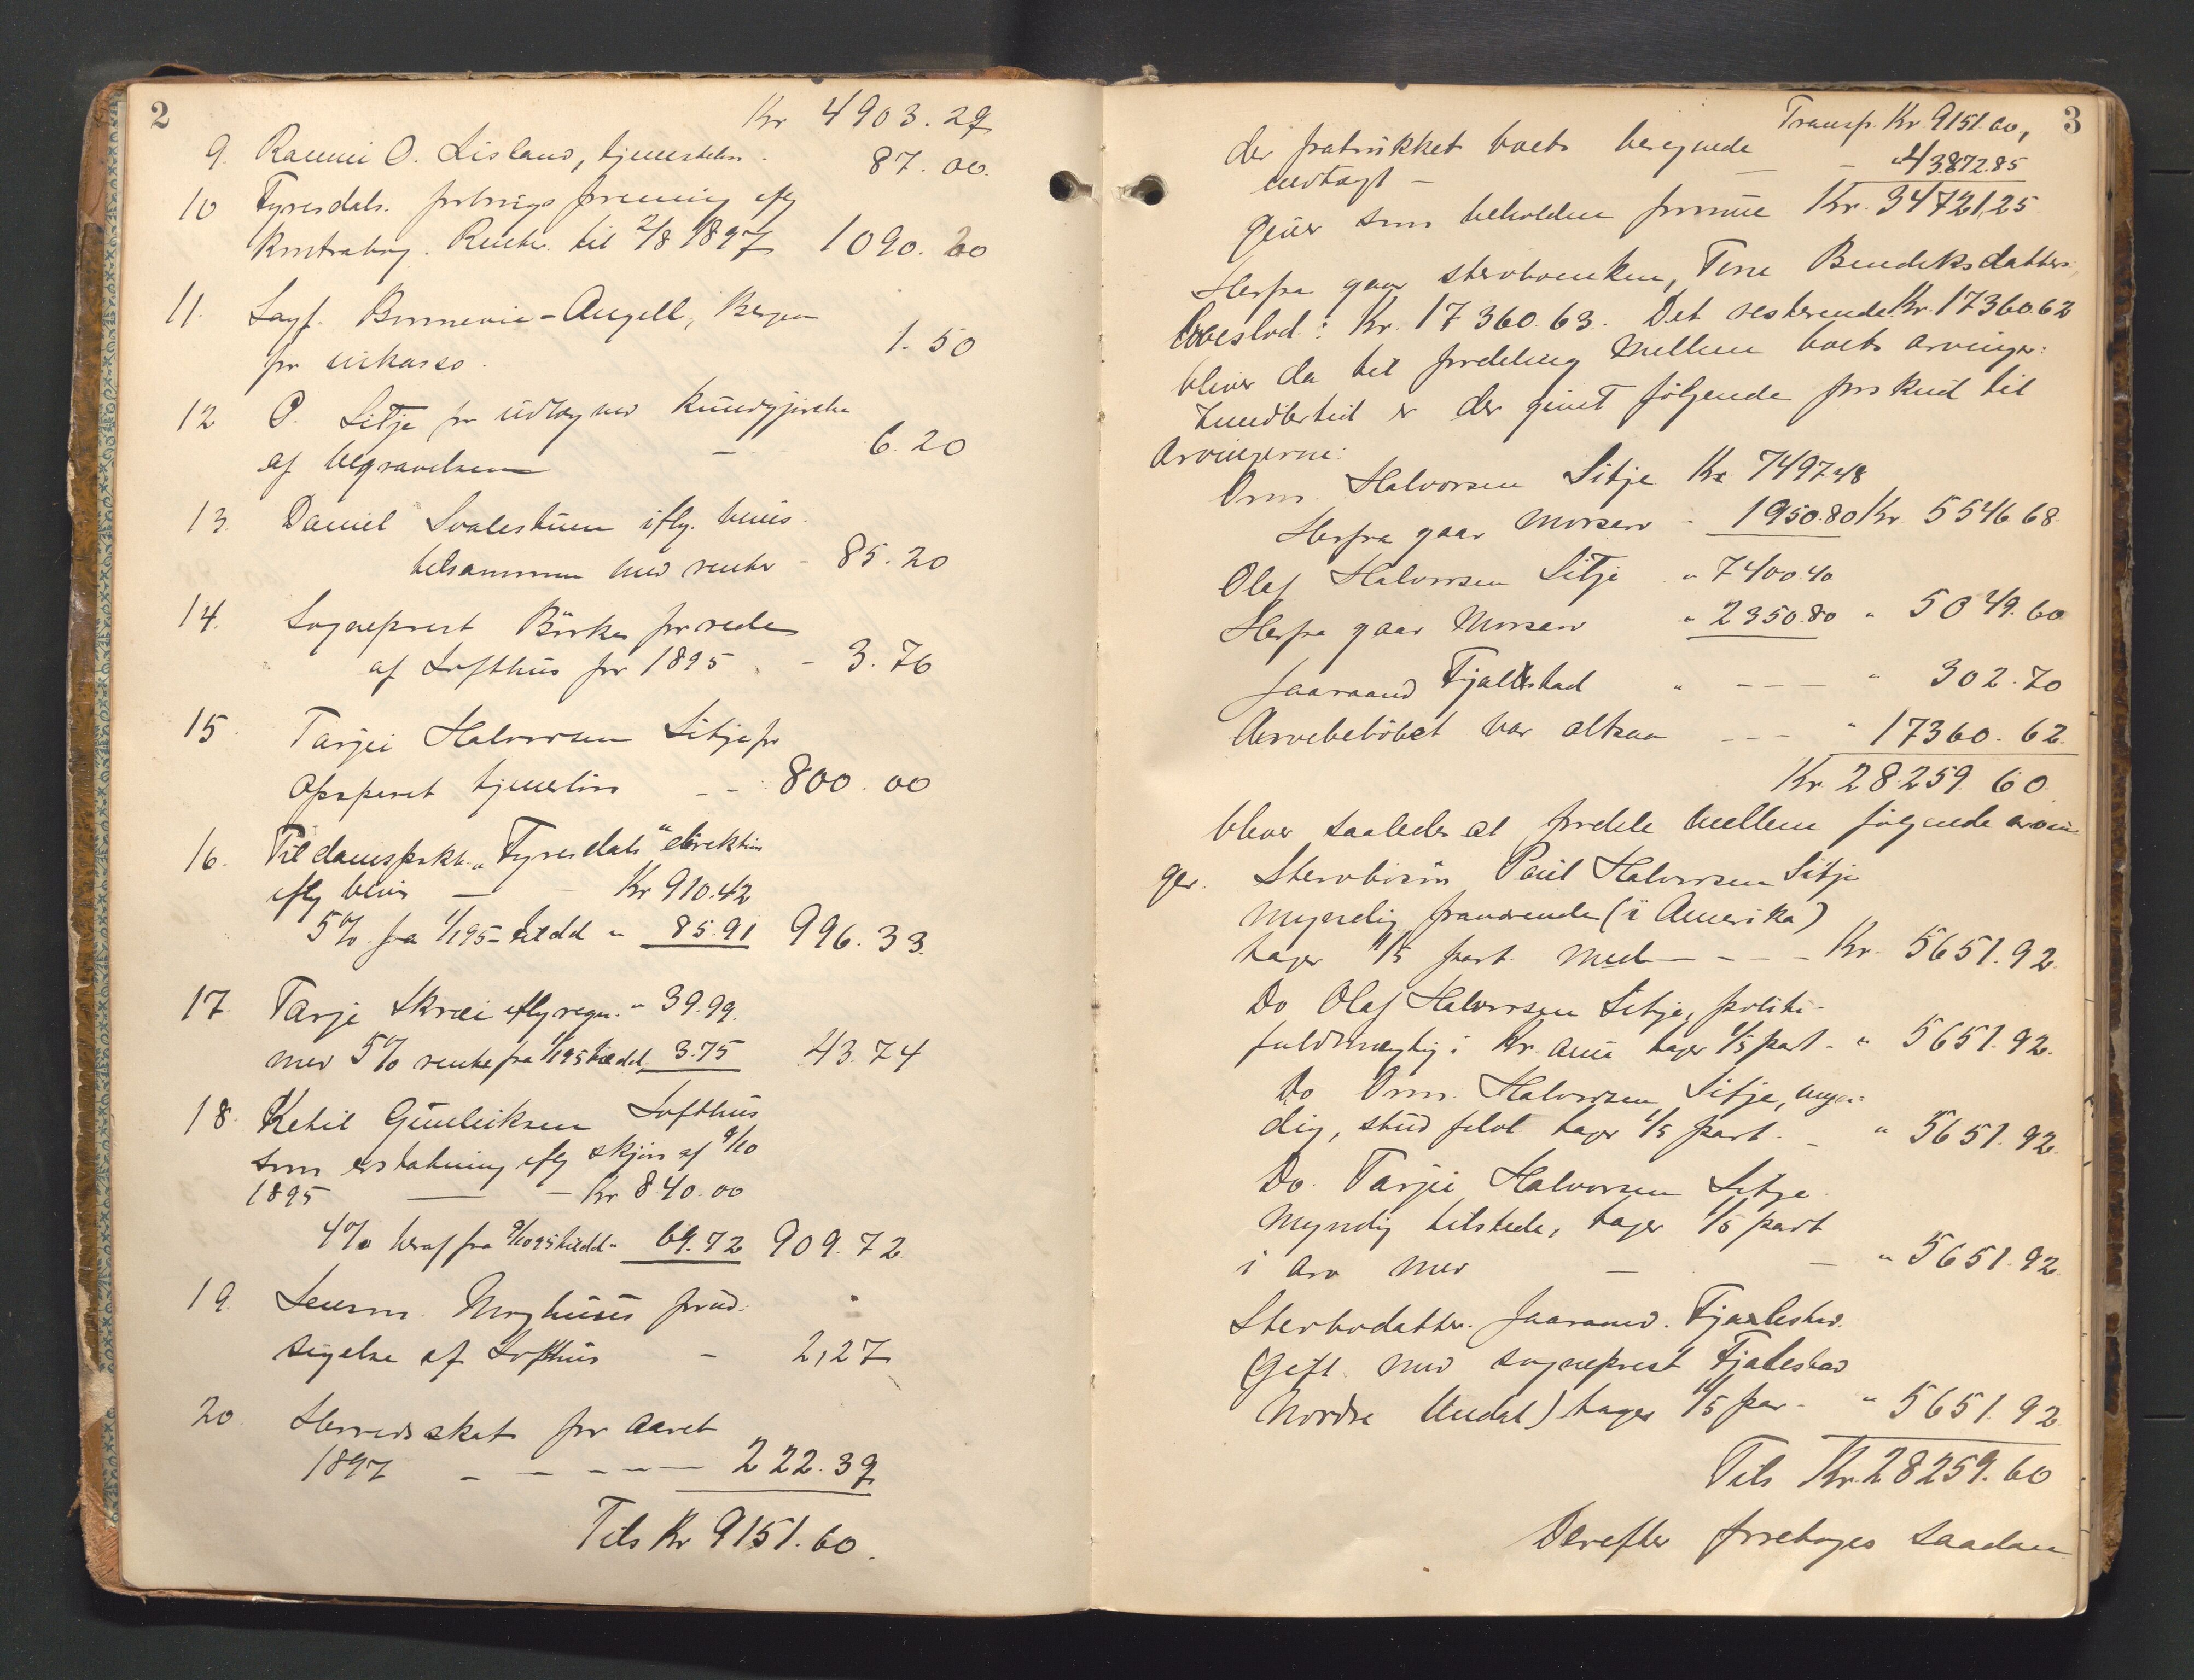 2
Kr 4903.29
9. Raunei O. Lisland, tjenesteløn. 87.00.
10 Tyresdals. forbrugsforening iflg
kontrabog. Renter til 2/8 1897 1090.20
11. Sagf. -Angell, Bergen
for inkasso. 1.50
12 O. Sitje for udlæg ved kundgjørelse
af begravelsen — 6.20
13. Daniel Svalestuen iflg. bevis.
tilsammen med renter - 85.20
14. Sogneprest Börke for rede
af Lofthus for 1895 - 3.76
15. Tarjei Halvorsen Sitje for
opsparet tjenerløn - - 800.00
16. Til dampskb. "Tyresdals" direktion
iflg bevis — Kr 910.42
5% fra 1/1 95 - til dd " 85.91 996.33.
17 Tarje Skrei iflg regn. " 39.99.
med 5% rente fra 1/1 95 til dd. 3.75 43.74
18. Ketil Gunleiksen Lofthus
som erstatning iflg skjøn af 9/10
1895 — - Kr 840.00
4% heraf fra 9/10 95 til dd - 69.72 909.72.
19. Lensm. Moghuus for ud-
sigelse af Lofthus - 2,27
20. Herredsskat for aaret
1897 - - - - - 222.39
Tils Kr 9151.60.
3
Transp. Kr. 9151.60,
der fratrukket boets beregnede
indtægt - — — " 43872.85
giver som beholden formue Kr. 34721,25
Herfra gaar sterboenken, Tone Bendiksdatters
Boeslod: Kr. 17360.63. Det resterende Kr. 17360.62
bliver da til fordeling mellem boets arvinger:
Imidlertid er der givet følgende forskud til
Arvingerne:
Orm. Halvorsen Sitje Kr 7497.48
Herfra gaar Morsarv - 1950.80 Kr. 5546.68.
Olaf Halvorsen Sitje " 7400.40
Herfra gaar Morsarv " 2350.80 " 5049.60
Jaaraand Fjalestad " - - - " 302.70
Arvebeløbet var altsaa - - - " 17360.62.
Kr 28.259.60.
bliver saaledes at fordele mellem følgende arvin
ger. Sterbosøn Paul Halvorsen Sitje
Myndig fraværende (i Amerika)
tager 1/5 part med - - - - Kr. 5651.92.
Do Olaf Halvorsen Sitje, politi-
fuldmægtig i Kr. ania tager 1/5 part - " 5651.92.
Do Orm. Halvorsen Sitje, myn-
dig, stud filol. tager 1/5 part. - " 5651.92.
Do. Tarjei Halvorsen Sitje.
Myndig tilstede, tager 1/5 part
i Arv med — — " 5651.92.
Sterbodatter. Jaaraand. Fjalestad.
(Gift med sogneprest Fjalestad
Nordre Undal) tager 1/5 par - " 5651.92.
Tils Kr. 28259.60
Derefter foretoges saadan